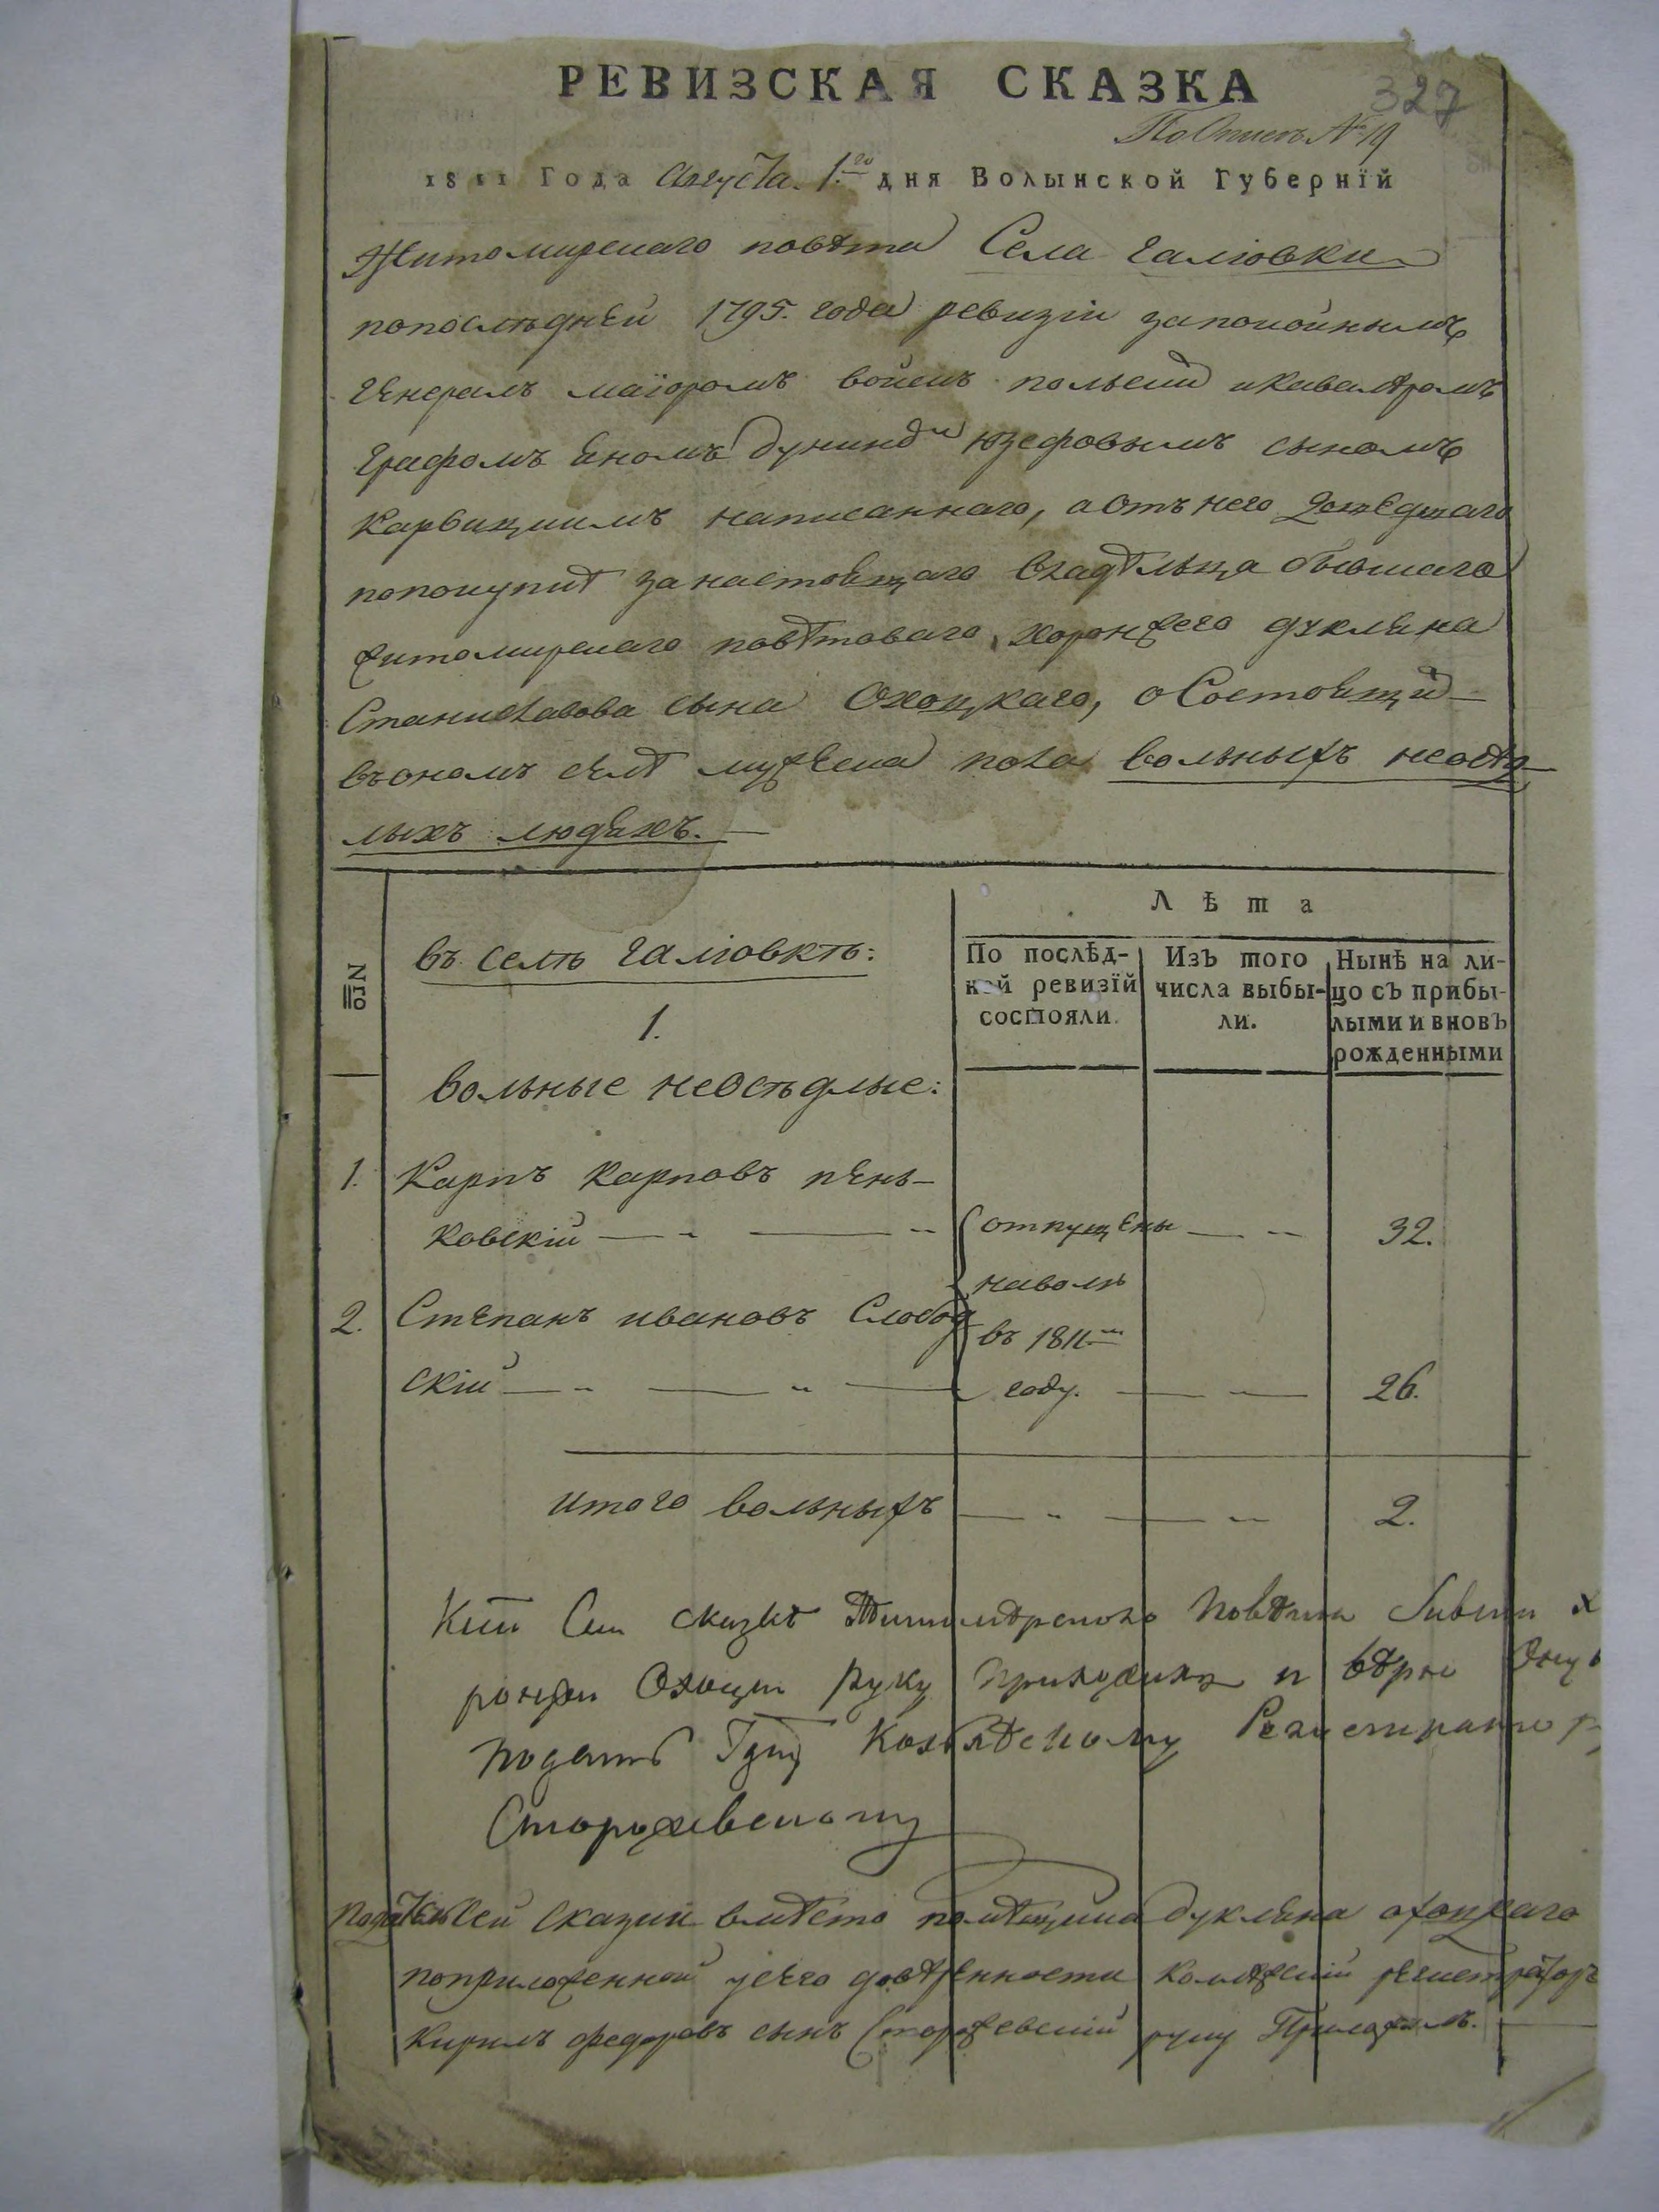 РЕВИЗСКАЯ СКАЗКА
327
По Описи № 19
1811 Года Августа 1го дня Волынской Губернїй
Житомирскаго повѣта Села Галіовки
попослѣдней 1795. года ревизіи запокойнымъ
Генералъ маіоромъ войскъ польски икавалѣромъ
Графомъ Яномъ дунинъ Юзефовымъ сыномъ
Карвицкимъ написаннаго, аотънего дошедшаго
попокупкѣ занастоящаго владѣльца бывшаго
житомирскаго повѣтоваго хоронжего дукляна
Станиславова сына Охоцкаго, оСостоящи
въономъ селѣ мужеска пола вольныхъ неосѣд
лыхъ людяхъ.
№
въ селѣ Галіовкѣ:
1.
вольные неосѣдлые:
Лѣта
По послѣд-
ней ревизїй
состояли.
Изъ того
числа выбы-
ли.
Нынѣ на ли-
цо съ прибы-
лыми и вновь
рожденными
1. Карпъ Карповъ пень-
ковскій отпущены 32.
наволю
2. Степанъ ивановъ Слобод
въ 1811м
скій году. 26.
итого вольныхъ 2.
Сказкѣ повѣта
Охоцки руку и вѣрю
подать Колѣскому
Сторожевскому
Ксей Сказки вмѣсто помѣщика дукляна охоцкаго
поприложенной усего довѣренности Колѣжскій регистраторъ
Кирилъ федоровъ сынъ Сторожевскій руку Приложилъ.